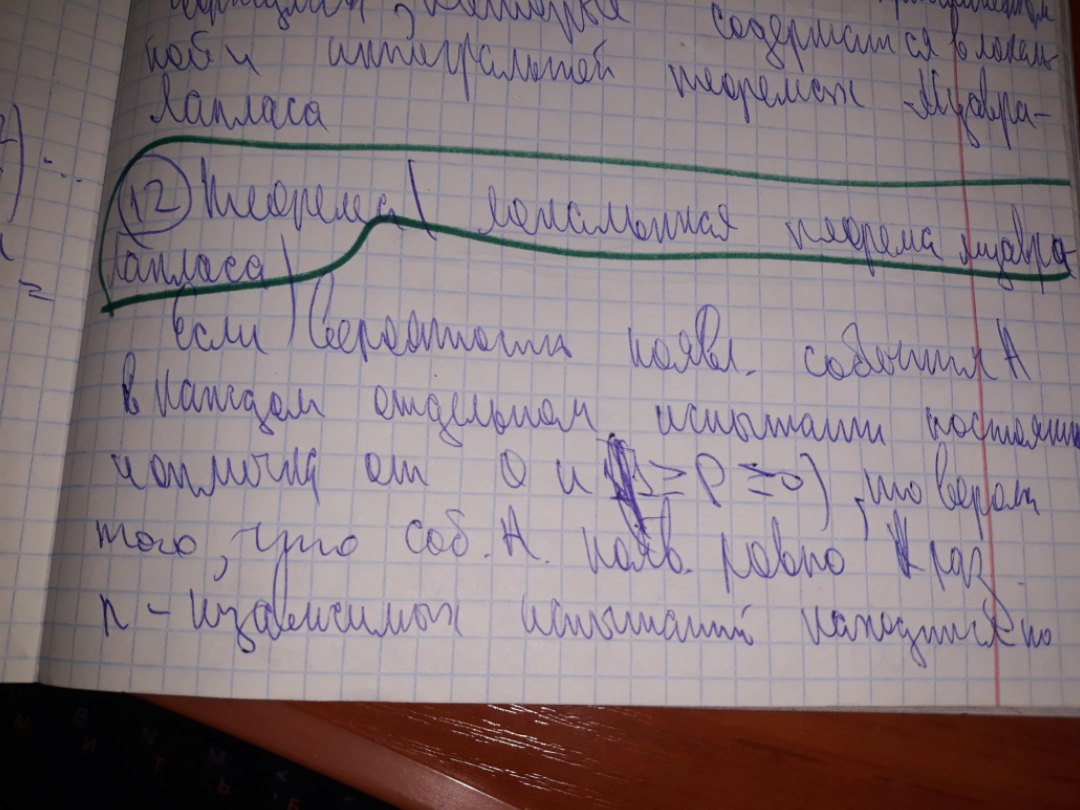 которые содержатся в локаль-
ной и интегральной теоремах Муавра-
Лапласа
12 Теорема (локальная теорема муавра-
лапласа)
если вероятность появл. события А
в каждом отдельном испытании постоянна
и отлична от 0 и ≥ P ≥ 0), то вероят
того, что соб. А. появ. ровно К раз.
n - независимых испытаний находится по